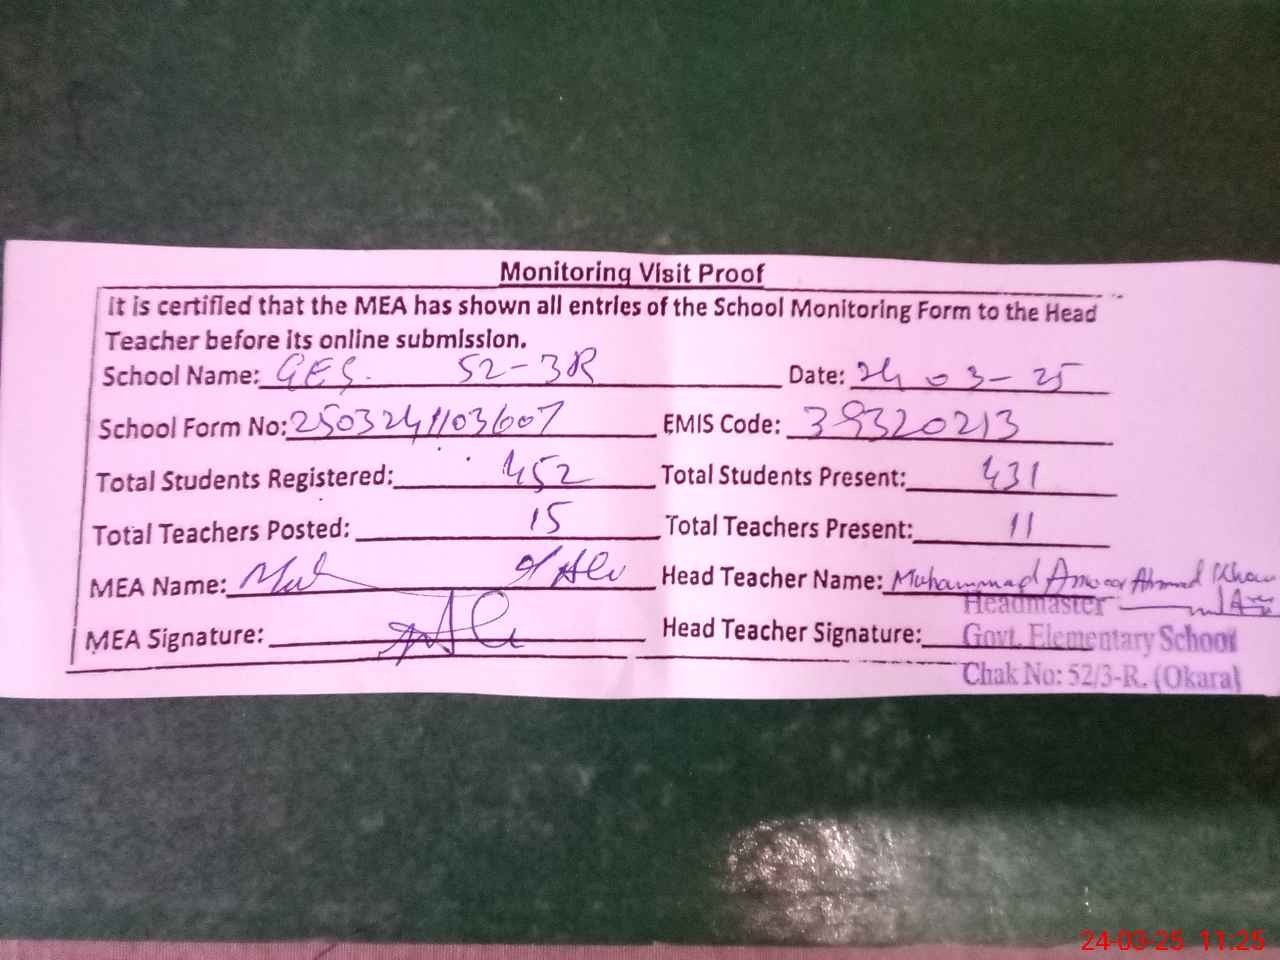 Monitoring Visit Proof
It is certified that the MEA has shown all entries of the School Monitoring Form to the Head
Teacher before its online submission.
School Name: GES. 52-3R Date: 24-03-25
School Form No: 2503241103607 EMIS Code: 39320213
Total Students Registered: 452 Total Students Present: 431
Total Teachers Posted: 15 Total Teachers Present: 11
MEA Name: Head Teacher Name: Muhammad Anwar Ahmad Khan
Headmaster
MEA Signature: Head Teacher Signature: Govt. Elementary School
Chak No: 52/3-R. (Okara)
24-03-25 11:25